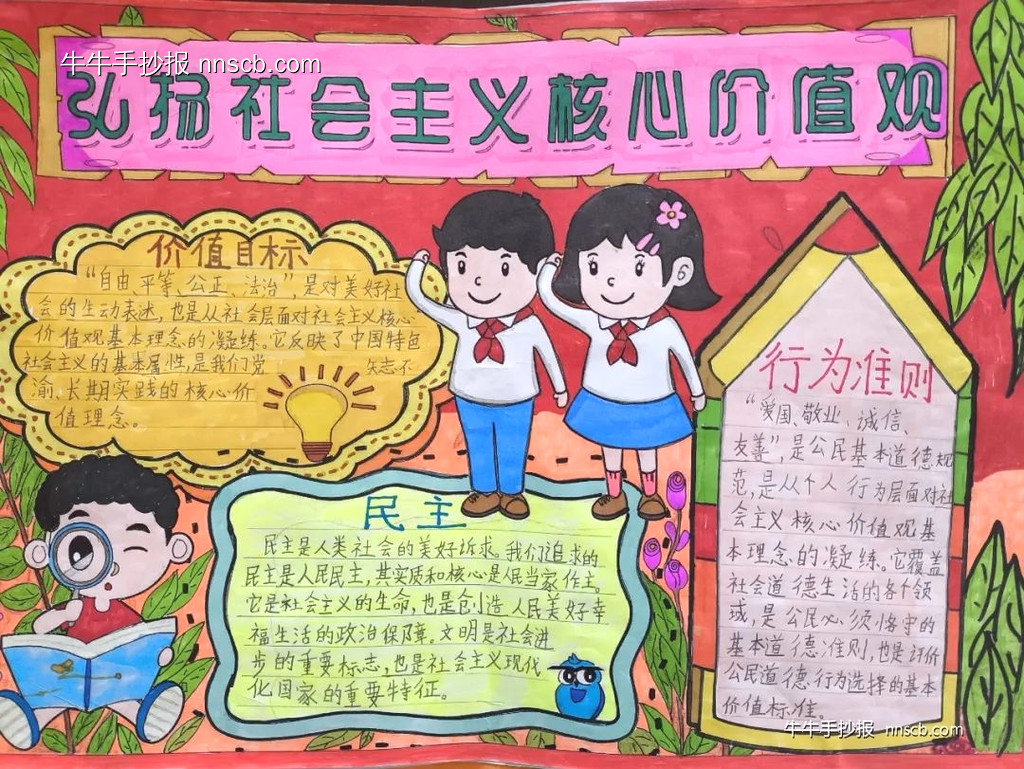 牛牛手抄报 nnscb.com
弘扬社会主义核心价值观
价值目标
“自由、平等、公正、法治”,是对美好社
会的生动表述,也是从社会层面对社会主义核心
价值观基本理念的凝练。它反映了中国特色
社会主义的基本属性,是我们党 矢志不
渝、长期实践的核心价
值理念。
民主
民主是人类社会的美好诉求。我们追求的
民主是人民民主,其实质和核心是人民当家作主。
它是社会主义的生命,也是创造人民美好幸
福生活的政治保障。文明是社会进
步的重要标志,也是社会主义现代
化国家的重要特征。
行为准则
“爱国、敬业、诚信、
友善”,是公民基本道德规
范,是从个人行为层面对社
会主义核心价值观基
本理念的凝练。它覆盖
社会道德生活的各个领
域,是公民必须恪守的
基本道德准则,也是评价
公民道德行为选择的基本
价值标准。
牛牛手抄报 nnscb.com